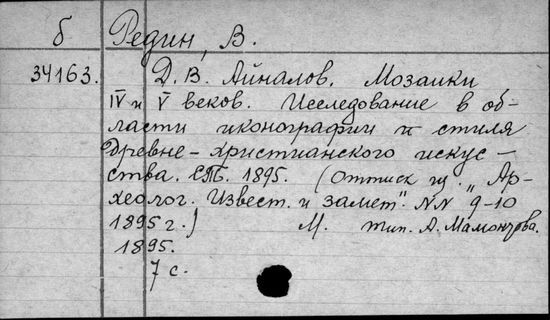 б Редин, В.
34163. Д. В. Айналов. Мозаики
IV и V веков. Исследование в об-
ласти иконографии и стиля
древне-христианского искус-
ства. СПб. 1895. (Оттиск из „Ар-
хеолог. Извест. и замет". NN 9-10
1895 г.) М. тип. А. Мамонтова.
1895.
7 с.